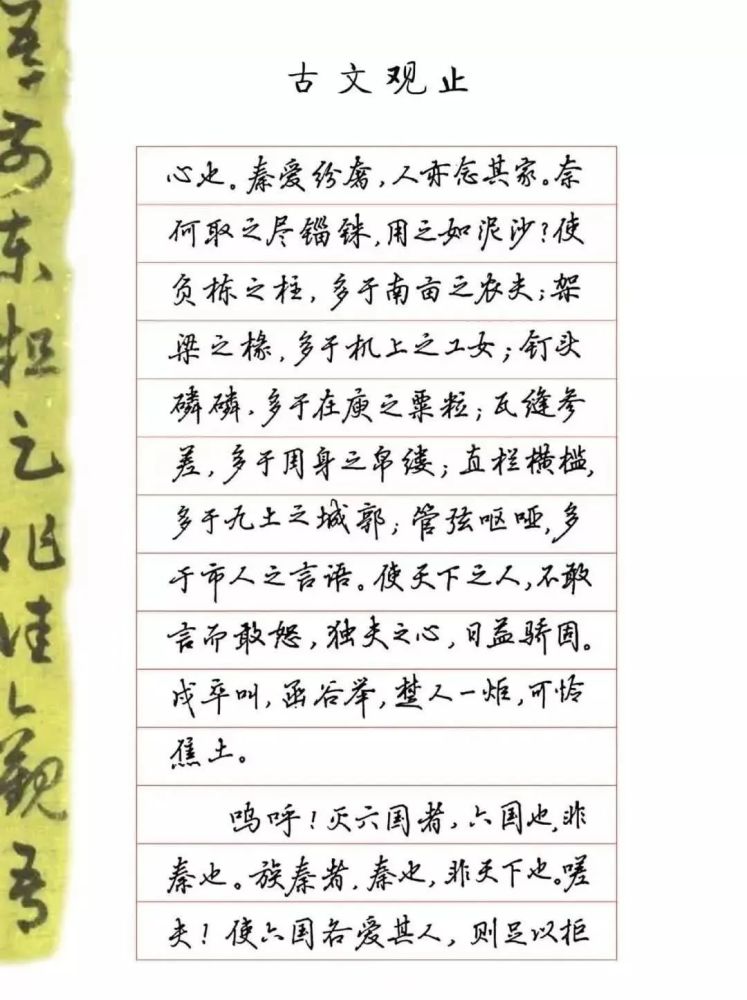 古文观止
心也。秦爱纷奢，人亦念其家。奈
何取之尽锱铢，用之如泥沙？使
负栋之柱，多于南亩之农夫；架
梁之椽，多于机上之工女；钉头
磷磷，多于在庾之粟粒；瓦缝参
差，多于周身之帛缕；直栏横槛，
多于九土之城郭；管弦呕哑，多
于市人之言语。使天下之人，不敢
言而敢怒，独夫之心，日益骄固。
戍卒叫，函谷举，楚人一炬，可怜
焦土。
呜呼！灭六国者，六国也，非
秦也。族秦者，秦也，非天下也。嗟
夫！使六国各爱其人，则足以拒